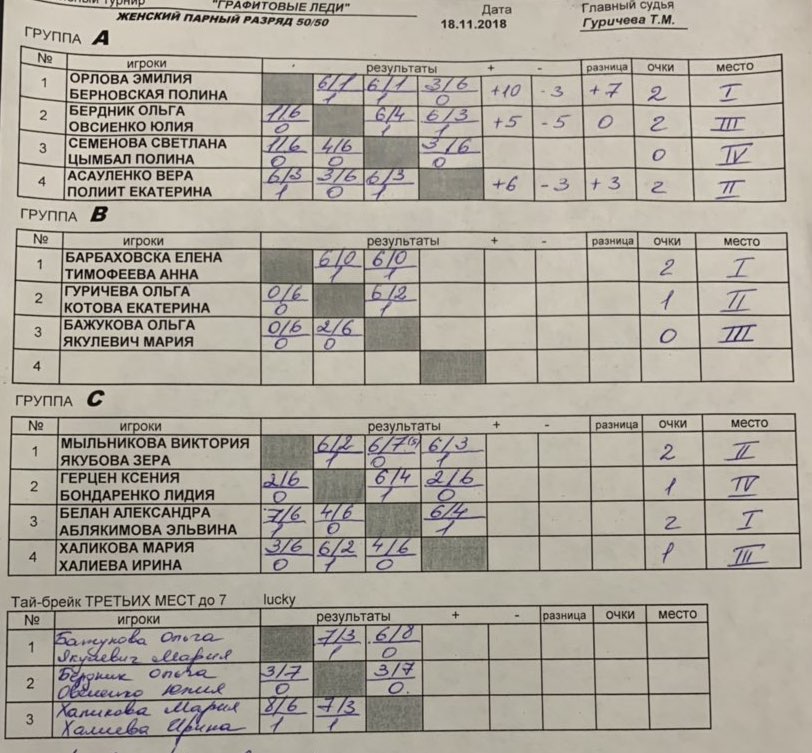 "ГРАФИТОВЫЕ ЛЕДИ" Дата Главный судья
ЖЕНСКИЙ ПАРНЫЙ РАЗРЯД 50/50 18.11.2018 Гуричева Т.М.
ГРУППА A
№ игроки результаты + - разница очки место
1 ОРЛОВА ЭМИЛИЯ 6/1 6/1 3/6
БЕРНОВСКАЯ ПОЛИНА 1 1 0 +10 -3 +7 2 I
2 БЕРДНИК ОЛЬГА 1/6 6/4 6/3
ОВСИЕНКО ЮЛИЯ 0 1 1 +5 -5 0 2 III
3 СЕМЕНОВА СВЕТЛАНА 1/6 4/6 3/6
ЦЫМБАЛ ПОЛИНА 0 0 0 0 IV
4 АСАУЛЕНКО ВЕРА 6/3 3/6 6/3
ПОЛИИТ ЕКАТЕРИНА 1 0 1 +6 -3 +3 2 II
ГРУППА B
№ игроки результаты + - разница очки место
1 БАРБАХОВСКА ЕЛЕНА 6/0 6/0
ТИМОФЕЕВА АННА 1 1 2 I
2 ГУРИЧЕВА ОЛЬГА 0/6 6/2
КОТОВА ЕКАТЕРИНА 0 1 1 II
3 БАЖУКОВА ОЛЬГА 0/6 2/6
ЯКУЛЕВИЧ МАРИЯ 0 0 0 III
4
ГРУППА C
№ игроки результаты + - разница очки место
1 МЫЛЬНИКОВА ВИКТОРИЯ 6/2 6/7(5) 6/3
ЯКУБОВА ЗЕРА 1 0 1 2 II
2 ГЕРЦЕН КСЕНИЯ 2/6 6/4 2/6
БОНДАРЕНКО ЛИДИЯ 0 1 0 1 IV
3 БЕЛАН АЛЕКСАНДРА 7/6 4/6 6/4
АБЛЯКИМОВА ЭЛЬВИНА 1 0 1 2 I
4 ХАЛИКОВА МАРИЯ 3/6 6/2 4/6
ХАЛИЕВА ИРИНА 0 1 0 1 III
Тай-брейк ТРЕТЬИХ МЕСТ до 7 lucky
№ игроки результаты + - разница очки место
1 Бажукова Ольга 7/3 6/8
Якулевич Мария 1 0
2 Бердник Ольга 3/7 3/7
Овсиенко Юлия 0 0.
3 Халикова Мария 8/6 7/3
Халиева Ирина 1 1